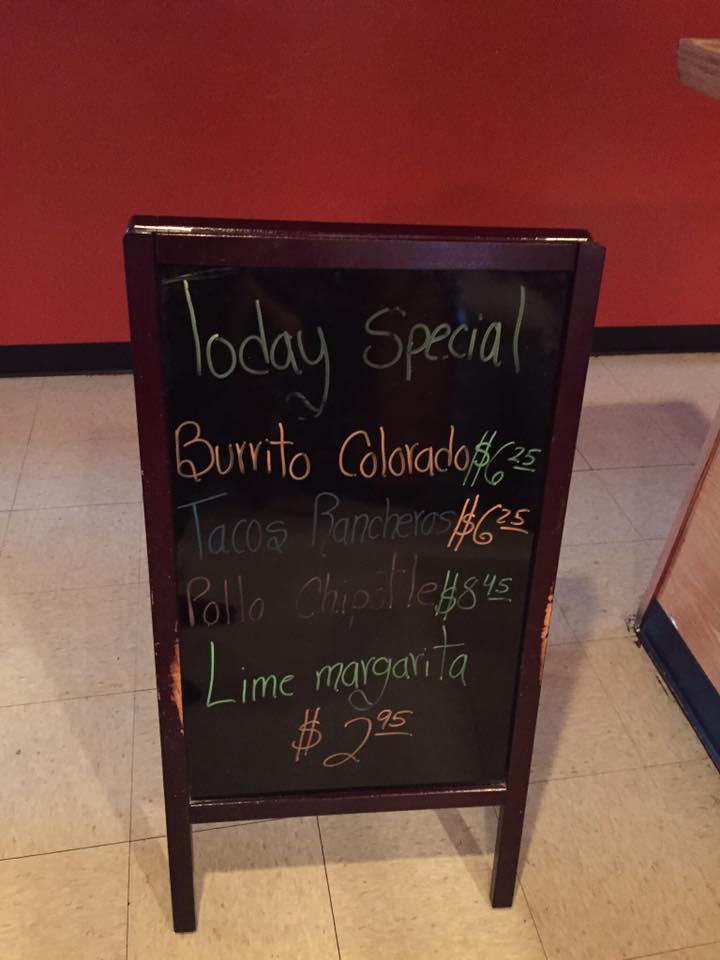 Today Special
Burrito Colorado $6.25
Tacos Rancheros $6.25
Pollo Chipotle $8.45
Lime margarita
$2.95